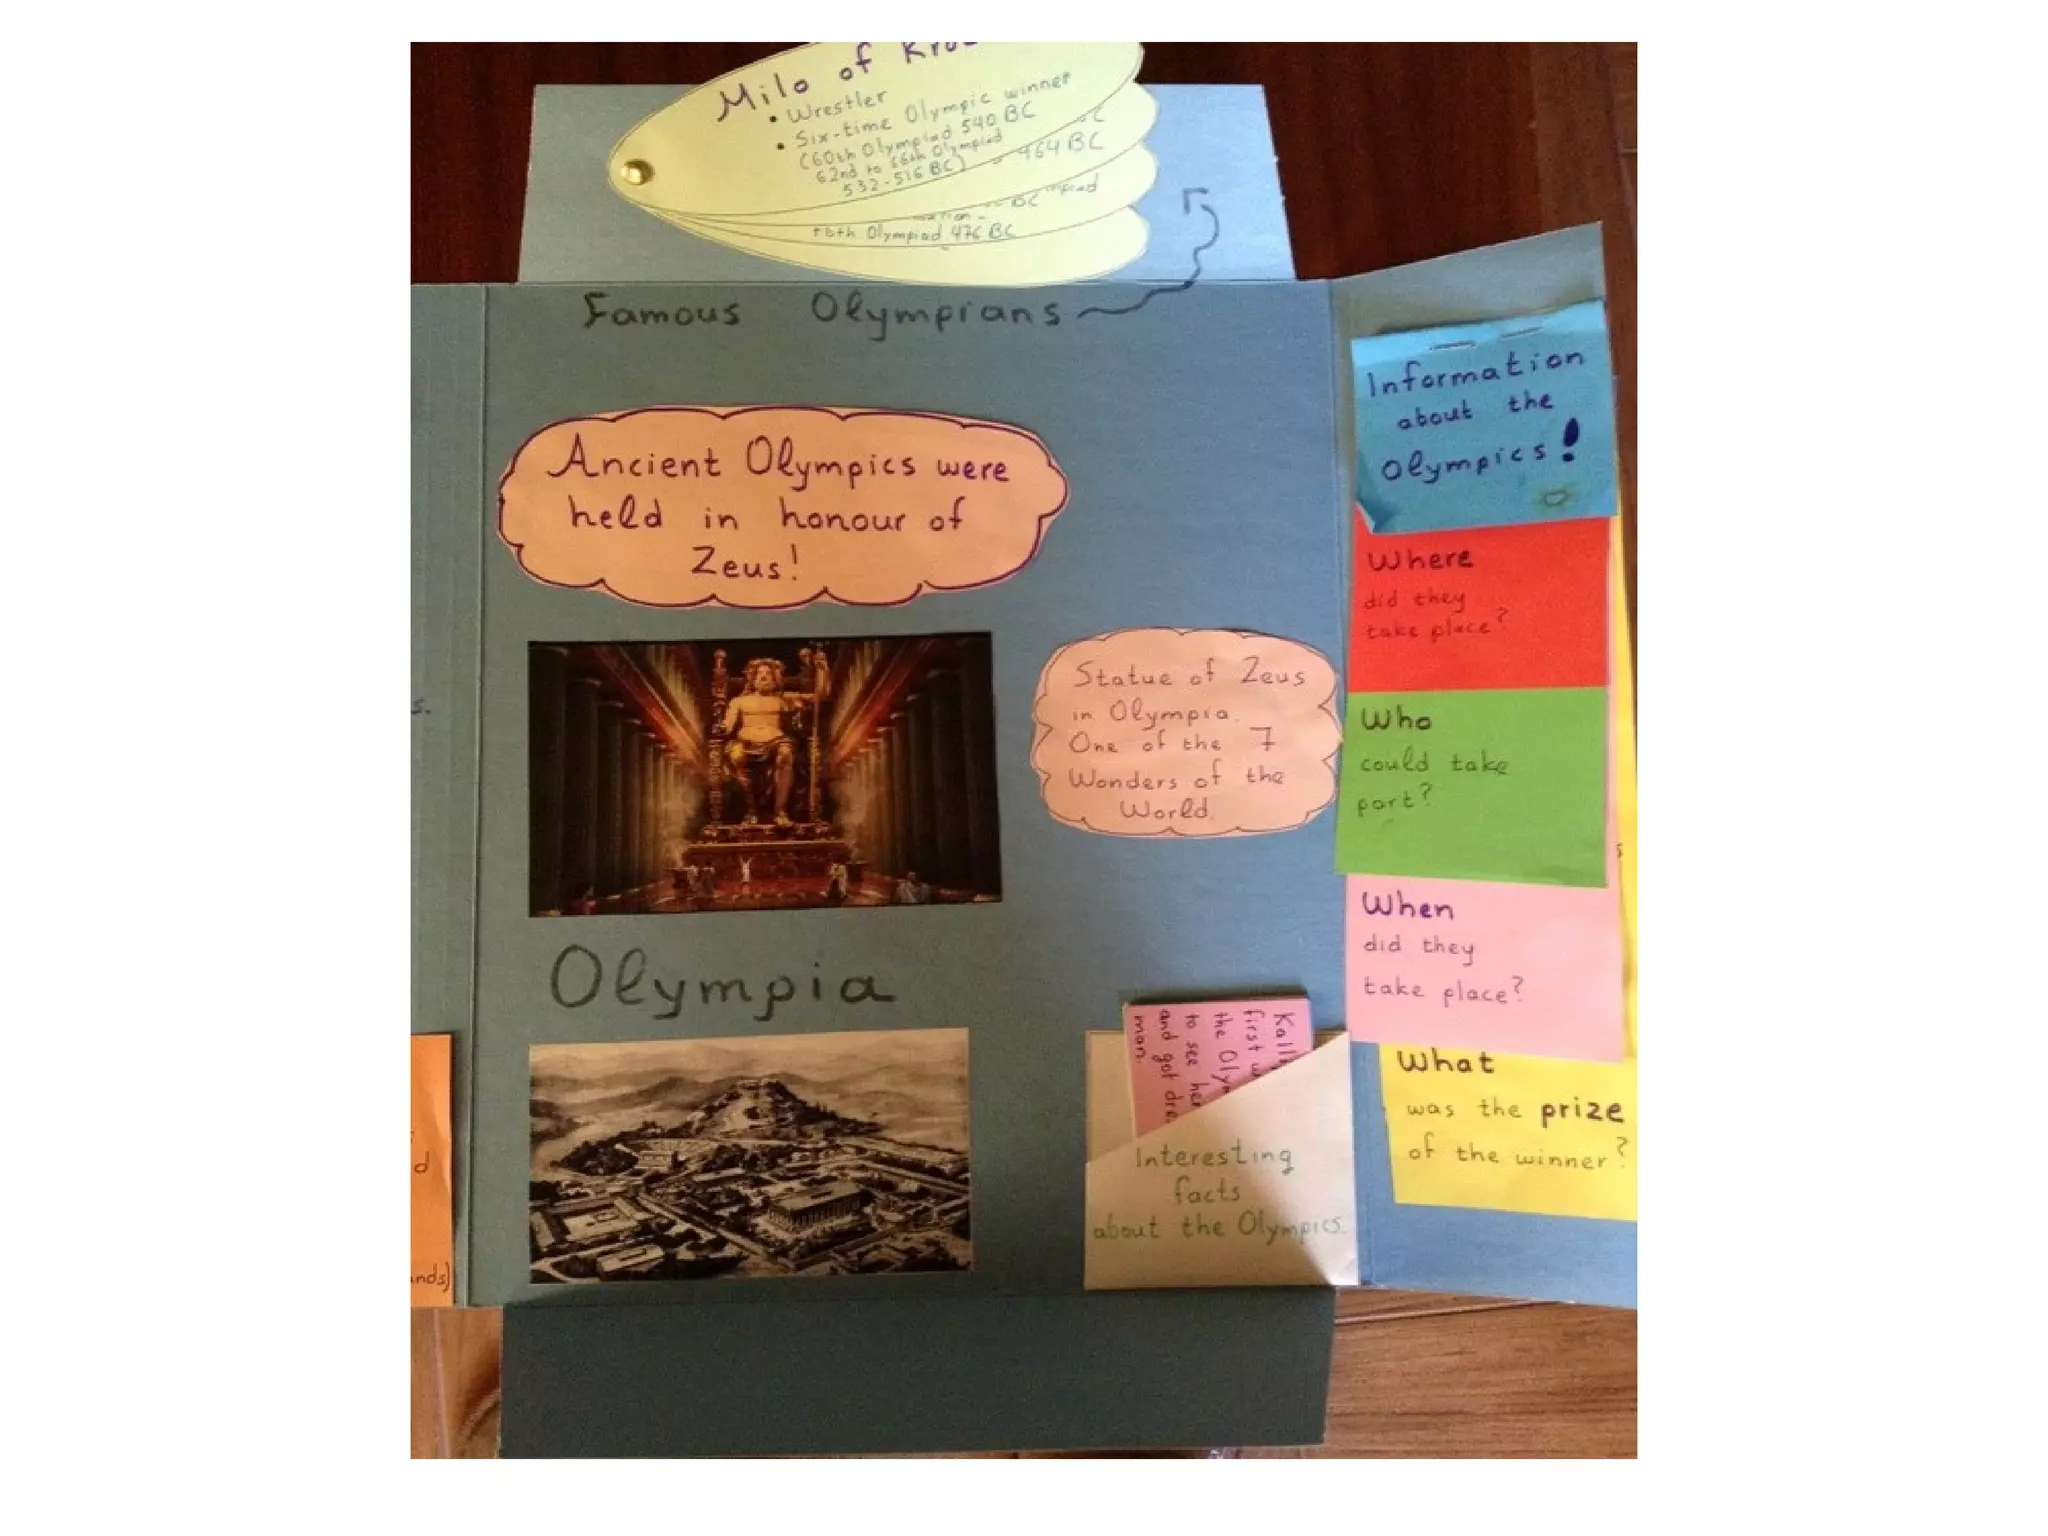 Milo of
• Wrestler
• Six-time Olympic winner
(60th Olympiad 540 BC
62nd to 66th Olympiad
532-516 BC)
464 BC
BC
Olympiad 476 BC
Famous Olympians
Ancient Olympics were
held in honour of
Zeus!
Statue of Zeus
in Olympia.
One of the 7
Wonders of the
World.
Olympia
Information
about the
Olympics!
Where
did they
take place?
Who
could take
part?
When
did they
take place?
What
was the prize
of the winner?
first
the
to see her
and got
man.
Interesting
facts
about the Olympics.